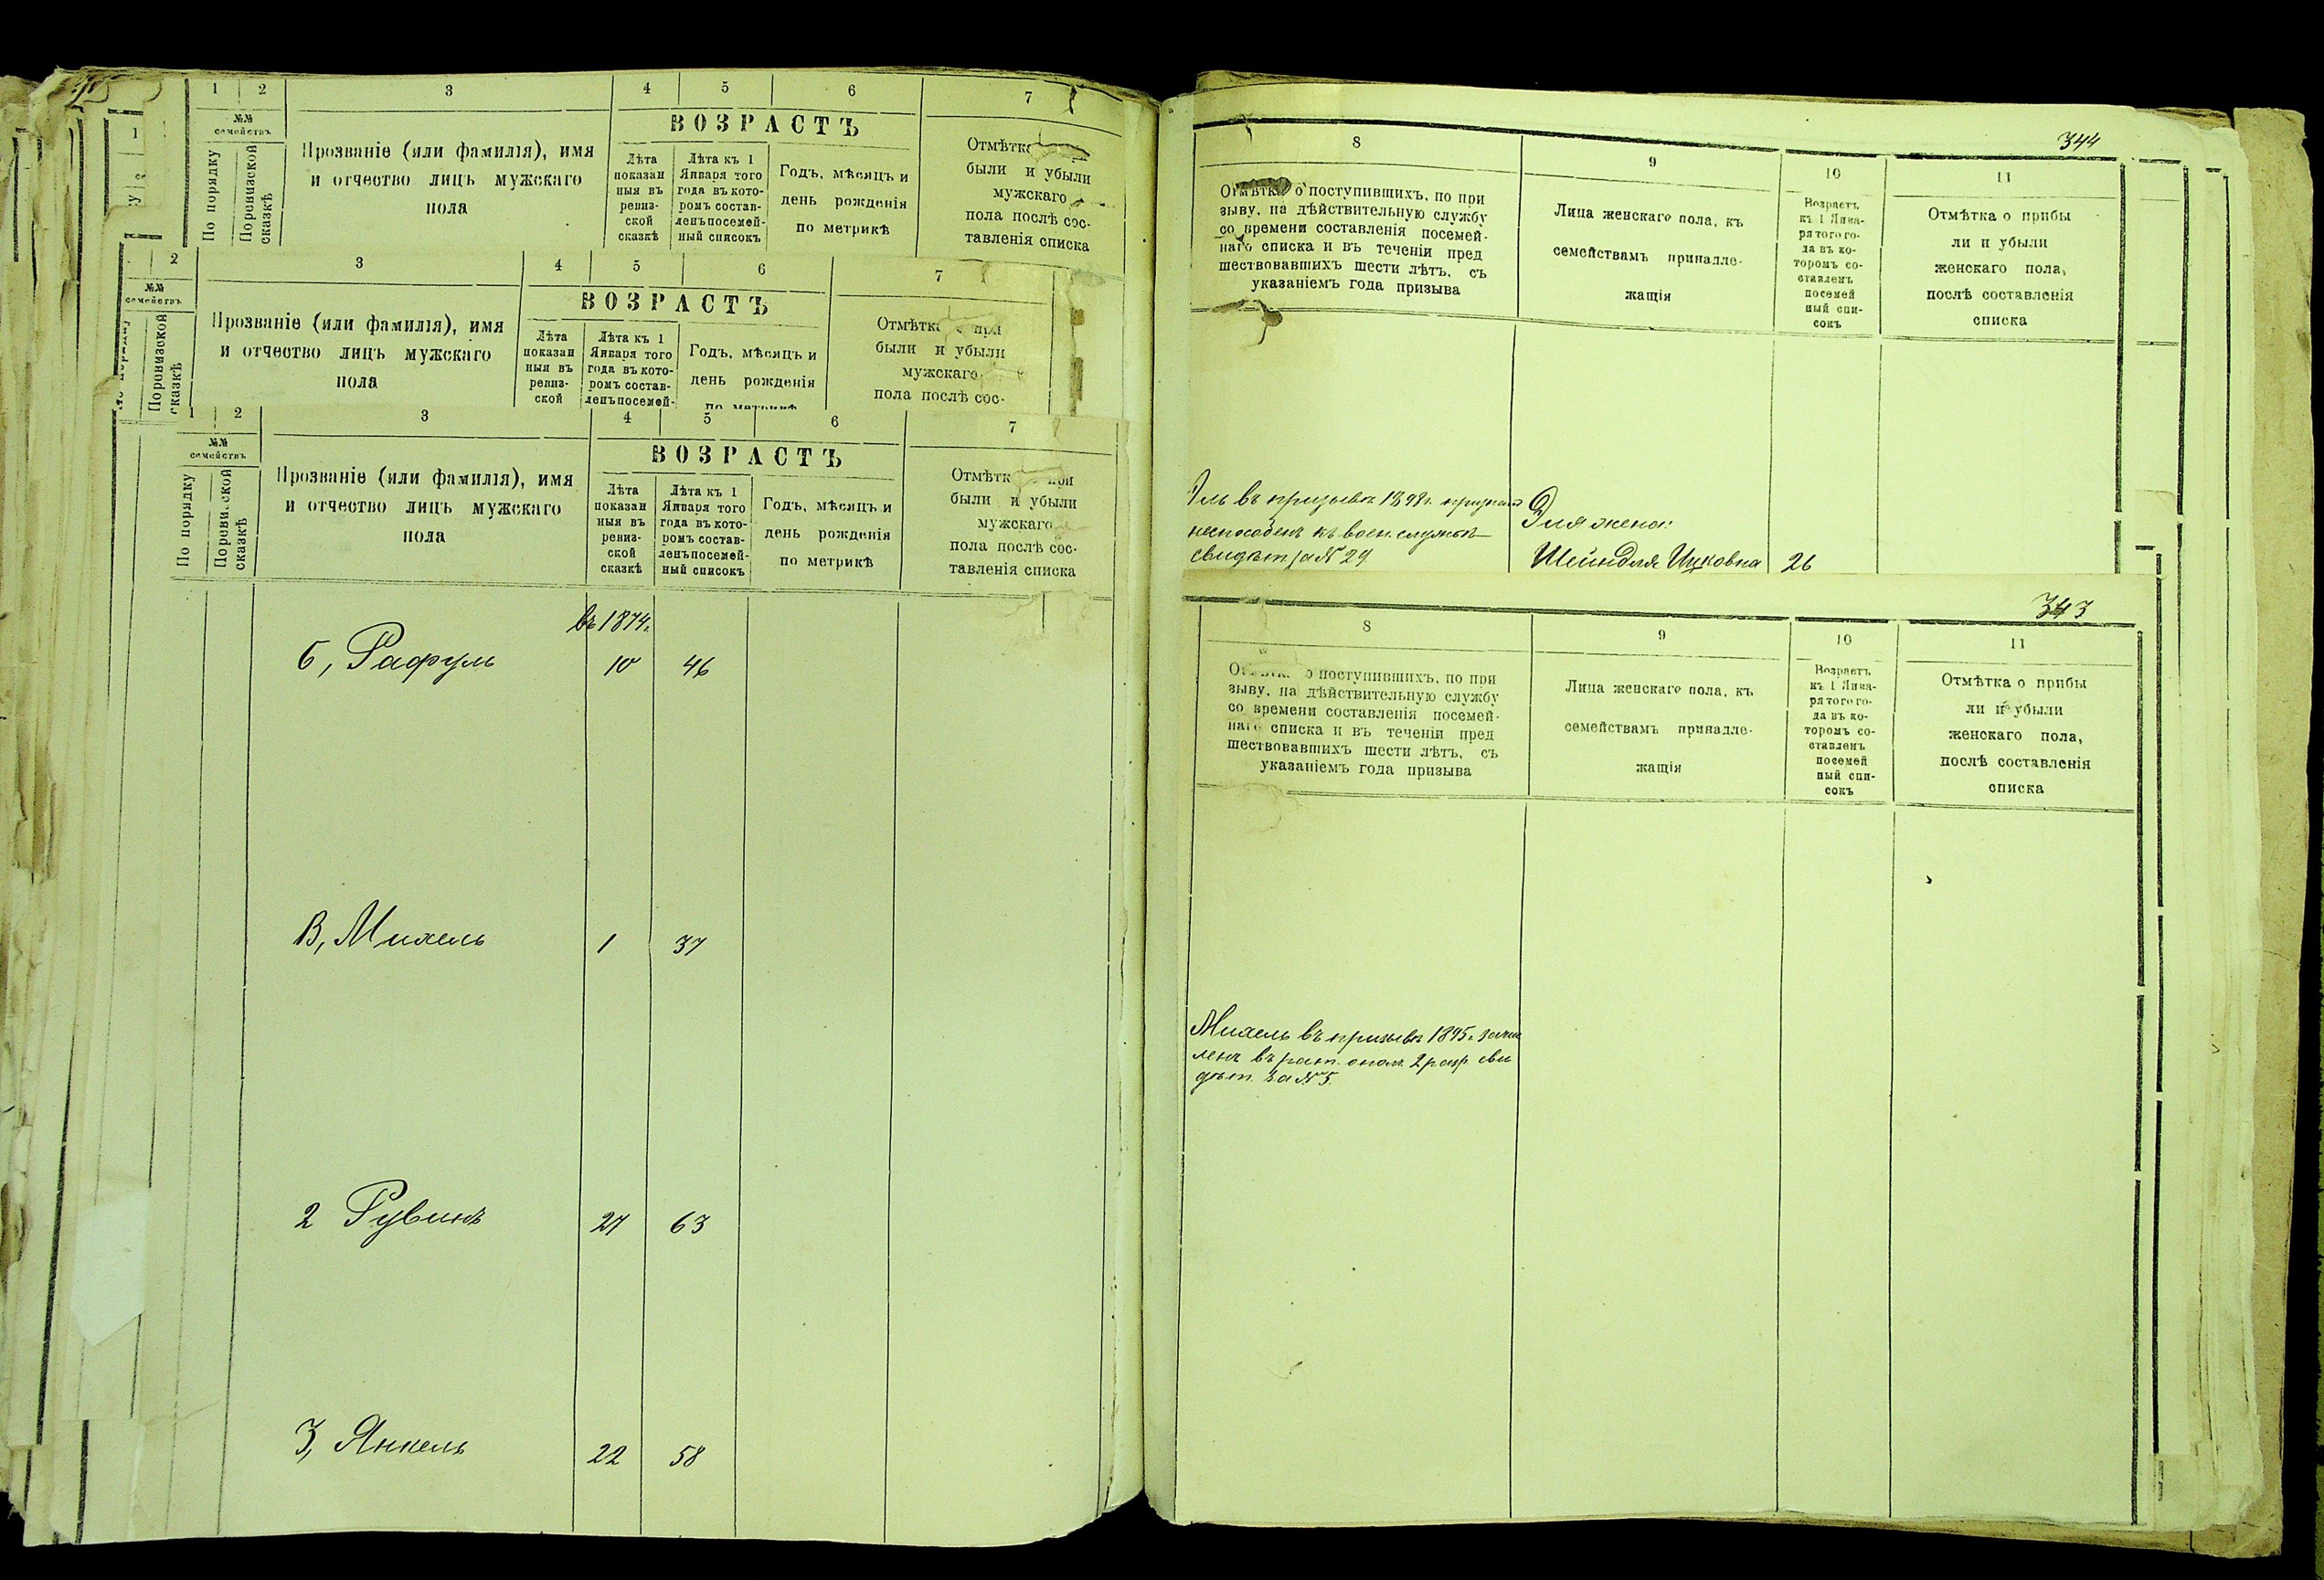 1 2 3 4 5 6 7
№№ семействъ
По порядку
По ревизской сказкѣ
Прозваніе (или фамилія), имя
и отчество лицъ мужскаго
пола
ВОЗРАСТЪ
Лѣта
показан
ныя въ
ревиз-
ской
сказкѣ
Лѣта къ 1
Января того
года въ кото-
ромъ состав-
ленъ посемей-
ный списокъ
Годъ, мѣсяцъ и
день рожденія
по метрикѣ
Отмѣтка
были и убыли
мужскаго
пола послѣ сос-
тавленія списка
2 3 4 5 6 7
№№
семействъ
По ревизской
сказкѣ
Прозваніе (или фамилія), имя
и отчество лицъ мужскаго
пола
ВОЗРАСТЪ
Лѣта
показан
ныя въ
ревиз-
ской
Лѣта къ 1
Января того
года въ кото-
ромъ состав-
ленъ посемей-
Годъ, мѣсяцъ и
день рожденія
по метрикѣ
Отмѣтка о при
были и убыли
мужскаго
пола послѣ сос-
1 2 3 4 5 6 7
№№
семействъ
По порядку
По ревизской
сказкѣ
Прозваніе (или фамилія), имя
и отчество лицъ мужскаго
пола
ВОЗРАСТЪ
Лѣта
показан
ныя въ
ревиз-
ской
сказкѣ
Лѣта къ 1
Января того
года въ кото-
ромъ состав-
ленъ посемей-
ный списокъ
Годъ, мѣсяцъ и
день рожденія
по метрикѣ
Отмѣтк при
были и убыли
мужскаго
пола послѣ сос-
тавленія списка
въ 1874г.
б, Рафуль 10 46
В, Михель 1 37
2 Рувинъ 27 63
3, Янкель 22 58
344
8 9 10 11
Отмѣтка о поступившихъ, по при
зыву, на дѣйствительную службу
со времени составленія посемей-
наго списка и въ теченіи пред
шествовавшихъ шести лѣтъ, съ
указаніемъ года призыва
Лица женскаго пола, къ
семействамъ принадле-
жащія
Возрастъ
къ 1 Янва-
ря того го-
да въ ко-
торомъ со-
ставленъ
посемей
ный спи-
сокъ
Отмѣтка о прибы
ли и убыли
женскаго пола,
послѣ составленія
списка
въ призывѣ 1898г. признанъ
неспособенъ къ воен. службѣ
свидѣт за № 29
Эля жена:
Шейндля Ицковна 26
343
8 9 10 11
о поступившихъ, по при
зыву, на дѣйствительную службу
со времени составленія посемей-
наго списка и въ теченіи пред
шествовавшихъ шести лѣтъ, съ
указаніемъ года призыва
Лица женскаго пола, къ
семействамъ принадле-
жащія
Возрастъ
къ 1 Янва-
ря того го-
да въ ко-
торомъ со-
ставленъ
посемей
ный спи-
сокъ
Отмѣтка о прибы
ли и убыли
женскаго пола,
послѣ составленія
списка
Михель въ призывѣ 1895г. зачис
ленъ въ рат. опол. 2 разр. сви
дѣт. за № 5.